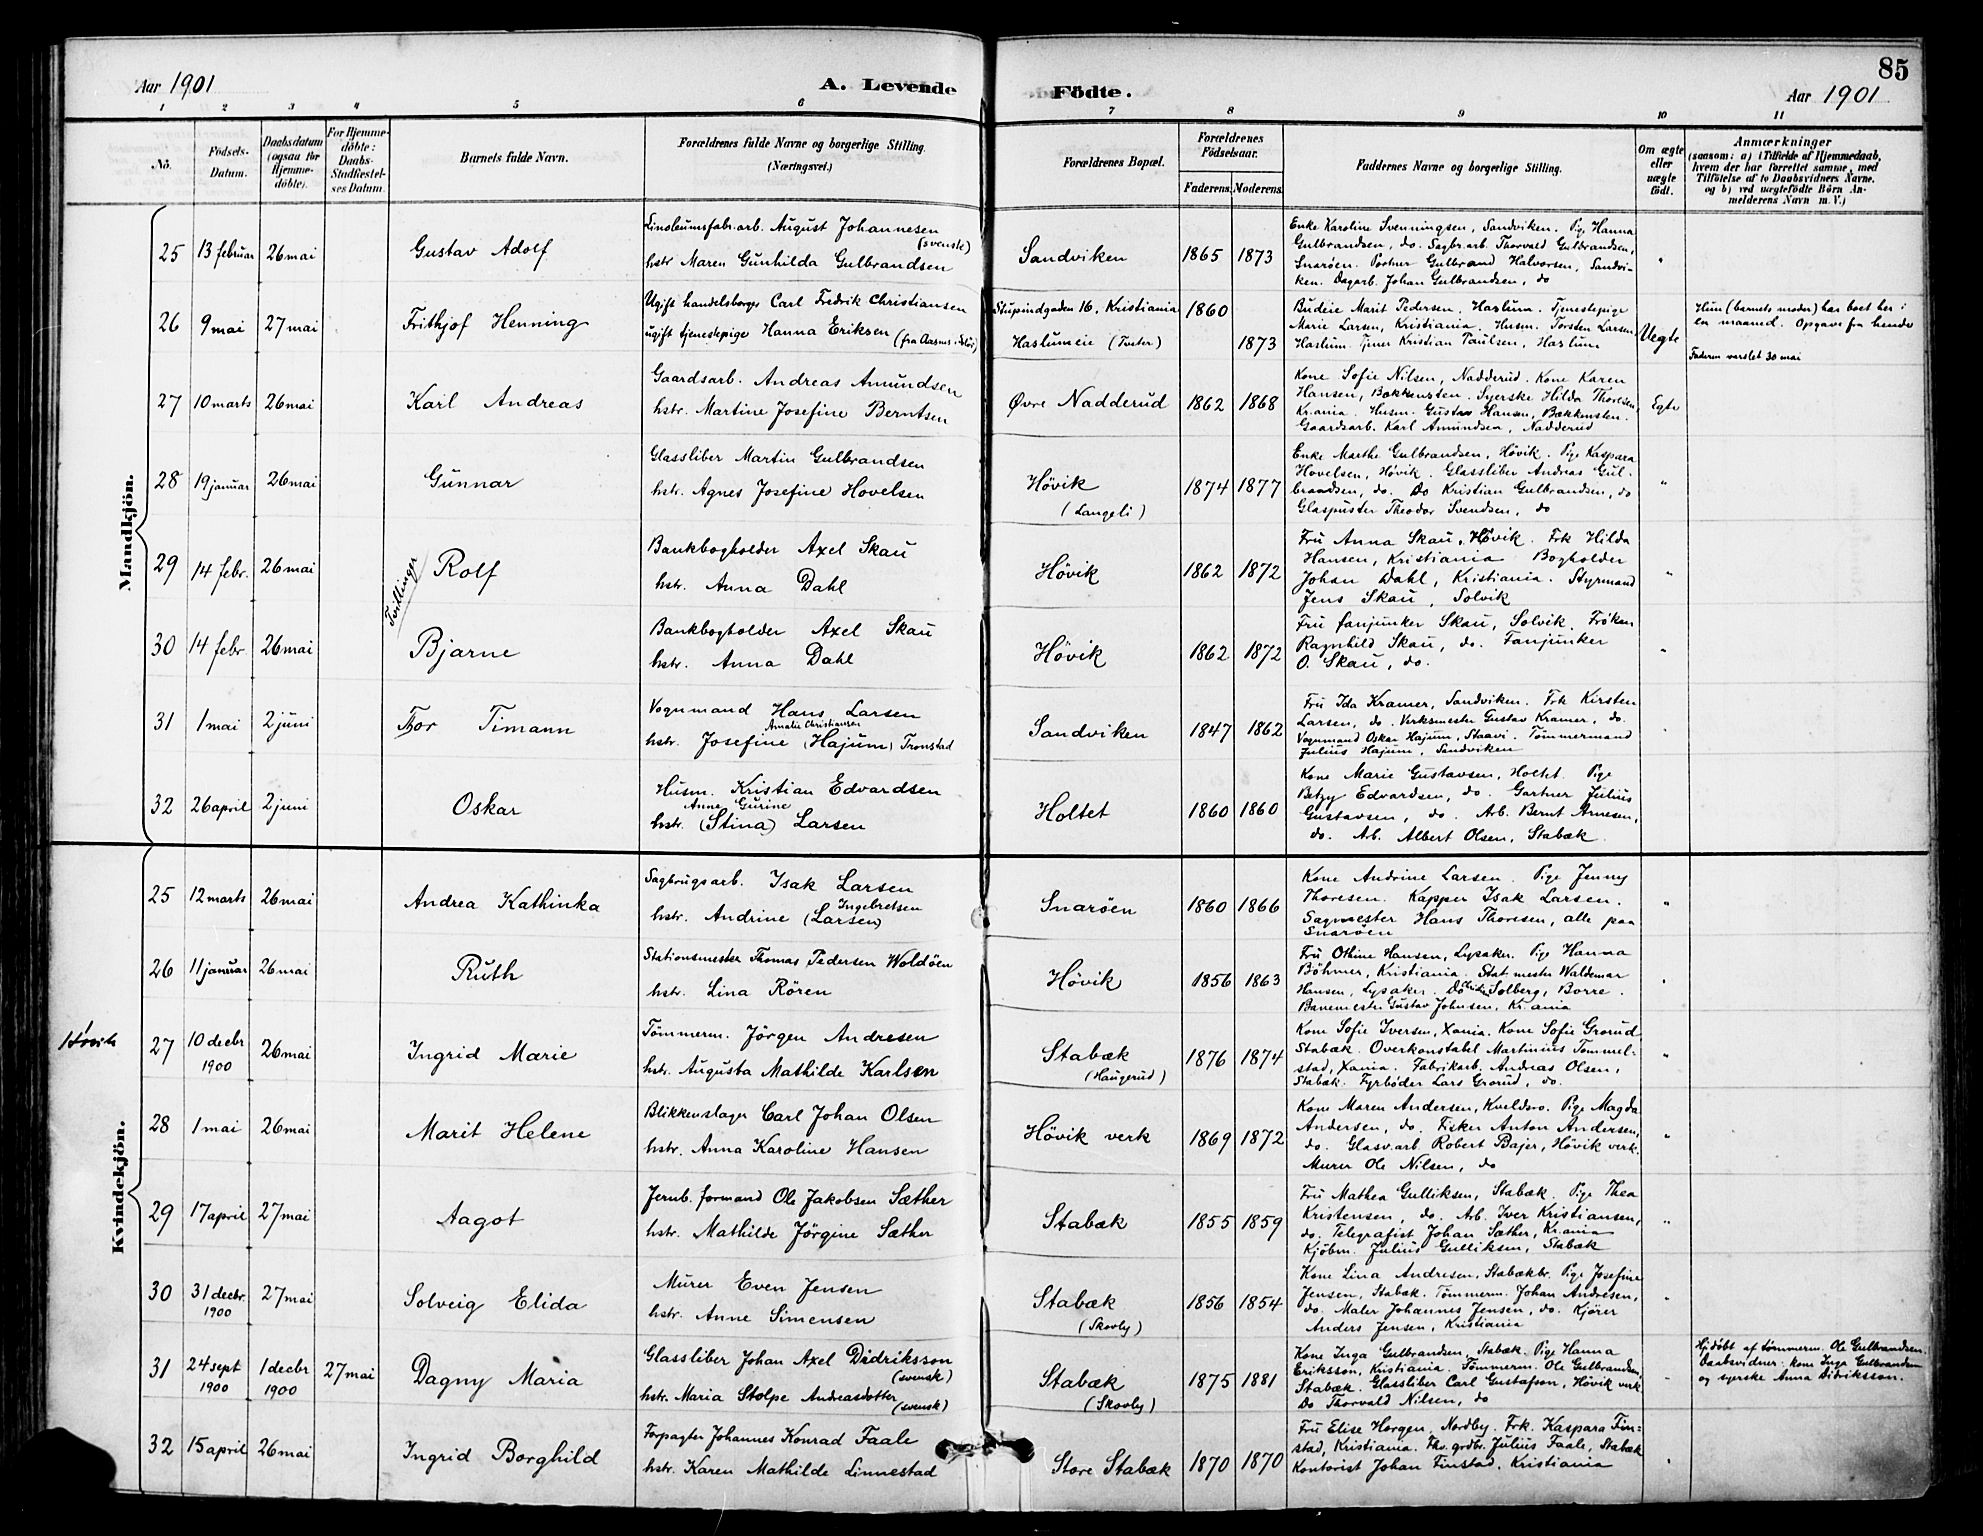 85
Aar 1901
A. Levende
Födte.
Aar 1901
1 2 3 4 5 6 7 8 9 10 11
No.
Födsels-Datum.
Daabsdatum (ogsaa for Hjemme-döbte).
For Hjemme-döbte: Daabs-Stadfæstel-ses Datum.
Barnets fulde Navn.
Forældrenes fulde Navne og borgerlige Stilling.
(Næringsvei.)
Forældrenes Bopæl.
Forældrenes Födselsaar.
Faderens. Moderens.
Faddernes Navne og borgerlig Stilling.
Om ægte eller uægte födt.
Anmærkninger
(saasom: a) i Tilfælde af Hjemmedaab,
hvem der har forrettet samme, med
Tilföielse af to Daabsvidners Navne.
og b) ved uægtefödte Börn An-
melderens Navn m. V.)
Mandkjön.
25 13 februar 26 mai Gustav Adolf
Linoleumsfabr.arb. August Johannesen
(svenske)
hstr Maren Gunhilda Gulbrandsen
Sandviken 1865 1873
Enke Karoline Svenningsen, Sandviken. Pige Hanna
Gulbrandsen, do. Sagbr.arb. Thorvald Gulbrandsen,
Snarøen. Portner Gulbrand Halvorsen, Sandvi-
ken. Dagarb. Johan Gulbrandsen, do
"
26 9 mai 27 mai Frithjof Henning
Ugift handelsborger Carl Fredrik Christiansen
ugift tjenestepige Hanna Eriksen (fra Aasnes)
Stupindgaden 16, Kristiania 1860
Haslumeie (Tveter) 1873
Budeie Marit Pedersen, Haslum. Tjenestepige
Marie Larsen, Kristiania. Husm. Torsten Larsen
Haslum. Tjener Kristian Paulsen, Haslum
Uegte
Hun (barnets moder) har boet her i
en maaned. Opgave fra hende
Faderen varslet 30 mai
27 10 marts 26 mai Karl Andreas
Gaardsarb. Andreas Amundsen
hstr. Martine Josefine Berntsen
Øvre Nadderud 1862 1868
Kone Sofie Nilsen, Nadderud. Kone Karen
Hansen, Bækkensten. Syerske Hilda Thoresen,
Kr.ania. Husm. Gustav Hansen, Bækkensten.
Gaardsarb. Karl Amundsen, Nadderud
Egte
28 19 januar 26 mai Gunnar
Glassliber Martin Gulbrandsen
hstr. Agnes Josefine Hovelsen
Høvik
(Langeli)
1874 1877
Enke Marthe Gulbrandsen, Høvik. Pige Kaspara
Hovelsen, Høvik. Glassliber Andreas Gul-
brandsen, do. Do Kristian Gulbrandsen, do
Glaspuster Theodor Svendsen, do
"
29 14 febr. 26 mai Rolf
Tvillinger
Bankbogholder Axel Skau
hstr. Anna Dahl
Høvik 1862 1872
Fru Anna Skau, Høvik. Frk Hilda
Hansen, Kristiania Bogholder
Johan Dahl, Kristiania. Styrmand
Jens Skau, Solvik
"
30 14 febr 26 mai Bjarne
Bankbogholder Axel Skau
hstr. Anna Dahl
Høvik 1862 1872
Fru fanjunker Skau, Solvik. Frøken
Ragnhild Skau, do. Fanjunker
O. Skau, do.
"
31 1 mai 2 juni Thor Timann
Vognmand Hans Larsen
Amalie Christiansen
hstr. Josefine (Hajum) Tronstad
Sandviken 1847 1862
Fru Ida Kramer, Sandviken. Frk Kirsten
Larsen, do. Verksmester Gustav Kramer, do.
Vognmand Oskar Hajum, Staavi. Tømmermand
Julius Hajum, Sandviken
32 26 april 2 juni Oskar
Husm. Kristian Edvardsen
Anne Gurine
hstr. (Stina) Larsen
Holtet 1860 1860
Kone Marie Gustavsen, Holtet. Pige
Betzy Edvardsen, do. Gartner Julius
Gustavsen, do. Arb. Bernt Arnesen,
do. Arb. Albert Olsen, Stabæk.
Kvindekjön.
25 12 marts 26 mai Andrea Kathinka
Sagbrugsarb. Isak Larsen
Ingebretsen
hstr. Andrine (Larsen)
Snarøen 1860 1866
Kone Andrine Larsen. Pige Jenny
Thoresen. Kapper Isak Larsen.
Sagmester Hans Thoresen, alle paa
Snarøen
"
26 11 januar 26 mai Ruth
Stationsmester Thomas Pedersen Woldøen
hstr. Lina Rören
Høvik 1856 1863
Fru Othine Hansen, Lysaker. Pige Hanna
Böhmer, Kristiania. Stat.mester Waldemar
Hansen, Lysaker. Do Solberg, Borre.
Banemester Gustav Johnsen, Kr.ania
Høvik
27 10 decbr 1900 26 mai Ingrid Marie
Tömmerm. Jörgen Andresen
hstr. Augusta Mathilde Karlsen
Stabæk
(Haugerud)
1876 1874
Kone Sofie Iversen, Xania. Kone Sofie Grorud
Stabæk. Overkonstabel Martinius Tommel-
stad, Xania. Fabrikarb. Andreas Olsen,
Stabæk. Fyrbøder Lars Grorud, do.
"
28 1 mai 26 mai Marit Helene
Blikkenslager Carl Johan Olsen
hstr. Anna Karoline Hansen
Høvik verk 1869 1872
Kone Maren Andersen, Kveldsro. Pige Magda
Andersen, do. Fisker Anton Andersen,
do. Glasv.arb Robert Bajer, Høvik verk.
Murer Ole Nilsen, do
"
29 17 april 27 mai Aagot
Jernb. formand Ole Jakobsen Sæther
hstr. Mathilde Jörgine Sæther
Stabæk 1855 1859
Fru Mathea Gulliksen, Stabæk. Pige Thea
Kristensen, do. Arb. Iver Kristiansen,
do. Telegrafist Johan Sæther, Kr.ania
Kjöbm. Julius Gulliksen, Stabæk
"
30 31 decbr. 1900 27 mai Solveig Elida
Murer Even Jensen
hstr. Anne Simensen
Stabæk
(Skovly)
1856 1854
Kone Lina Andresen, Stabækbr. Pige Josefine
Jensen, Stabæk. Tömmerm. Johan Andresen,
do. Maler Johannes Jensen, do. Kjører
Anders Jensen, Kristiania
"
31 24 sept 1900 1 decbr 1900 27 mai Dagny Maria
Glassliber Johan Axel Didriksson
(svensk)
hstr. Maria Stolpe Andreasdotter
(svensk)
Stabæk
(Skovly)
1875 1881
Kone Inga Gulbrandsen, Stabæk. Pige Hanna
Eriksson, Kristiania. Tömmerm. Ole Gulbrandsen,
Stabæk. Glassliber Carl Gustafson, Høvik verk
Do Thorvald Nilsen, do
Hj.döbt af tömmerm. Ole Gulbrandsen.
Daabsvidner: kone Inga Gulbrandsen
og syerske Anna Didriksson.
32 15 april 26 mai Ingrid Borghild
Forpagter Johannes Konrad Faale
hstr. Karen Mathilde Linnestad
Store Stabæk 1870 1870
Fru Elise Horgen, Nordby. Frk. Kaspara Fin-
stad, Kristiania. Fhv. grdbr. Julius Faale, Stabæk
Kontorist Johan Finstad, Kristiania